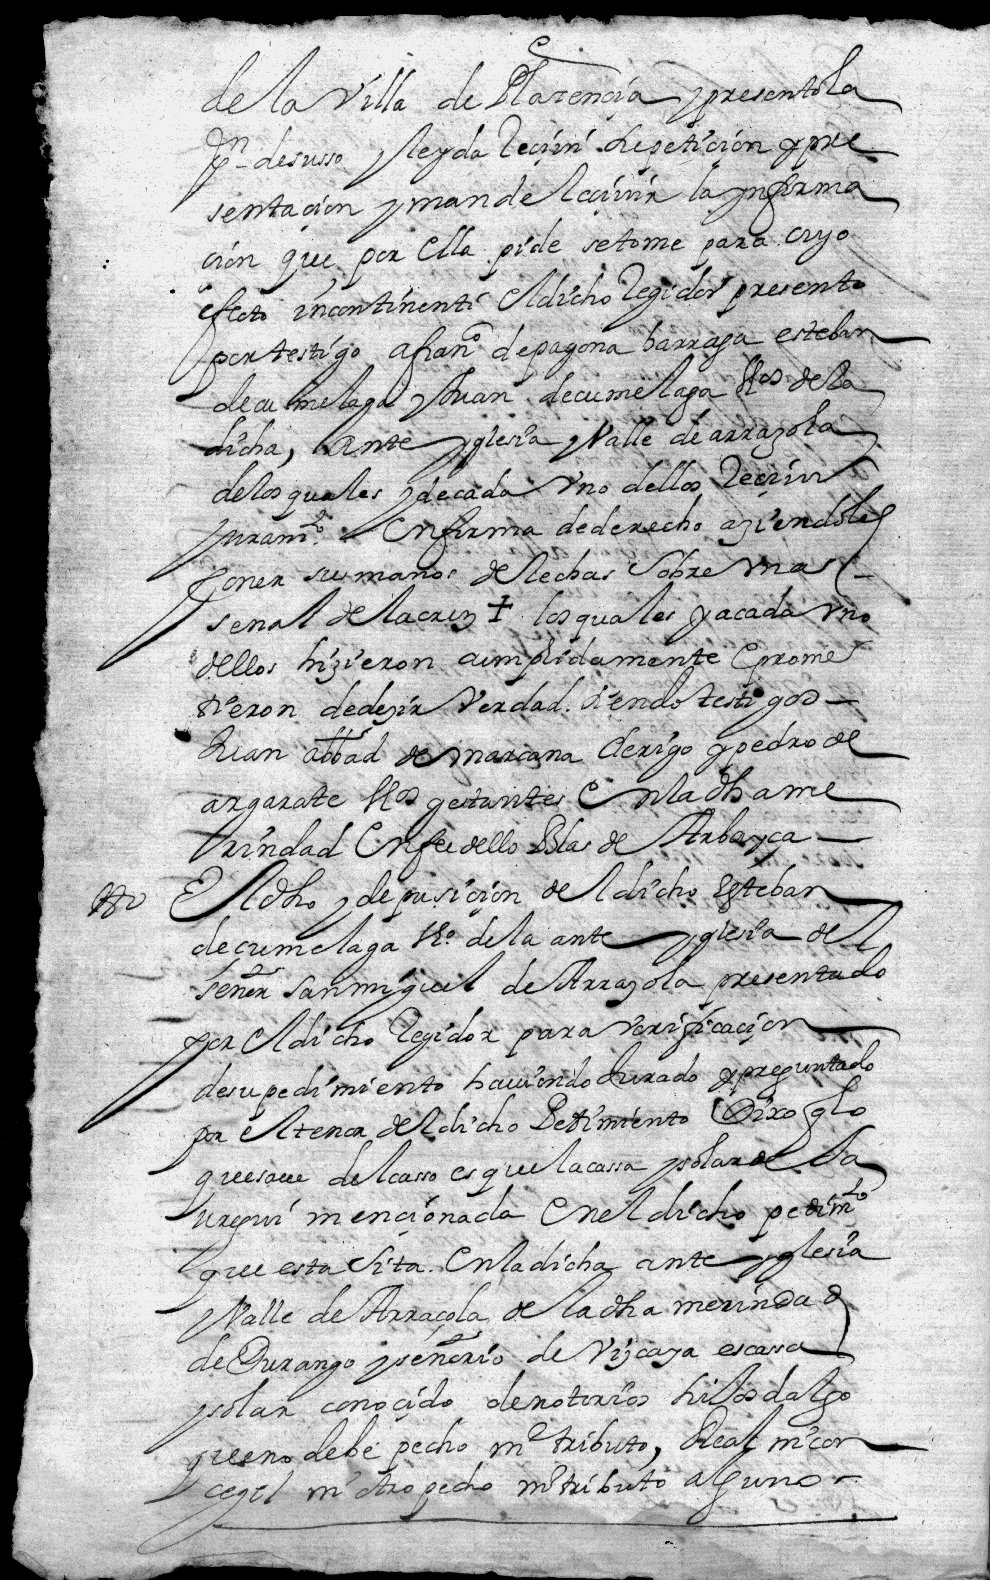 de la Villa de Plazençia y presentola
Jn desusso y leyda Reçiui la peticion y pre
sentaçion y mande Reçiuir la ynforma
çion que por ella pide se tome para cuyo
efecto incontinenti el dicho Regidor presento
por testigo a fran.co de pagona barraga esteban
de cumelaga y Juan de cumelaga Vos de la
dicha, ante yglesia y Valle de arrazola
de los quales y de cada Vno dellos Reçiui
juram.to en forma de derecho aziendoles
poner sus manos derechas sobre una
senal de la cruz + los quales y a cada vno
dellos hizieron cumplidamente e prome
tieron de dezir Verdad. siendo testigos
Juan abbad de marcana Clerigo y pedro de
argarate Vos y estantes en la dha me
rindad en fee dello Blas de Arbayça
tt.o El dho y depusiçion del dicho Esteban
de cumelaga Vo. de la ante yglesia del
señor san miguel de Arrazola presentado
por el dicho Regidor para Verificaçion
de su pedimiento hauiendo Jurado y preguntado
por el tenor del dicho Pedimiento Dixo q lo
que saue del casso es que la cassa y solar de
urqui mençionada en el dicho pedim.to
que esta sita en la dicha ante yglesia
y Valle de Arraçola de la dha merindad
de Durango y señorio de Vizcaya es cassa
y solar conoçido de notorios hijosdalgo
que no debe pecho ni tributo, Real ni con
cegil ni otro pecho ni tributo alguno